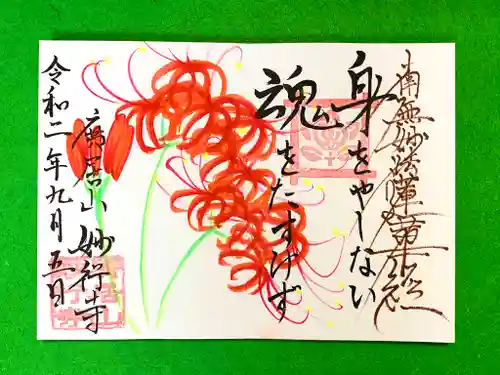 南無妙法蓮華経
身をやしない
魂をたすけず
妙行寺
令和二年九月五日